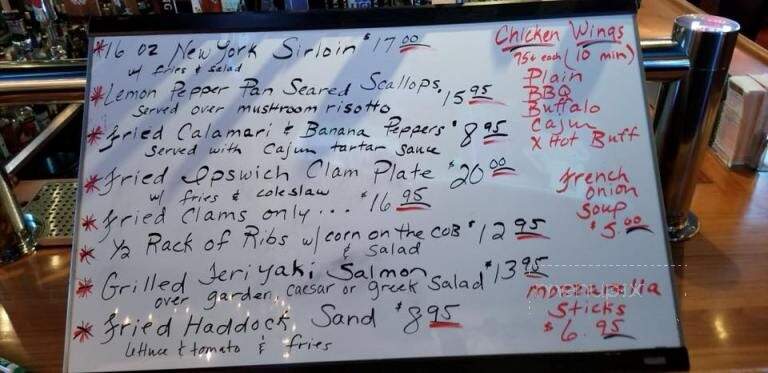 *16 oz New York Sirloin $17.00
w/ fries & salad
*Lemon Pepper Pan Seared Scallops, 15.95
Served over mushroom risotto
*Fried Calamari & Banana Peppers $8.95
Served with Cajun tartar sauce
*Fried Ipswich Clam Plate $20.00
w/ fries & coleslaw
*Fried Clams only... $16.95
*1/2 Rack of Ribs w/ corn on the COB $12.95
& Salad
*Grilled Teriyaki Salmon $13.95
over garden, caesar or greek Salad
*Fried Haddock Sand $8.95
lettuce & tomato & fries
Chicken Wings
75¢ each (10 min)
Plain
BBQ
Buffalo
Cajun
X Hot Buff
French
Onion
Soup
$5.00
mozzarella
Sticks
$6.95